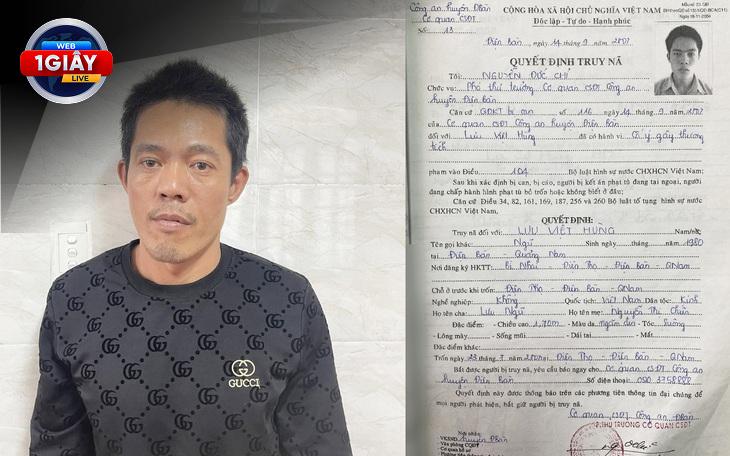 WEB
1GIÂY
LIVE
GUCCI
Công an huyện ĐBàn
Cơ quan CSĐT
Số 13
CỘNG HÒA XÃ HỘI CHỦ NGHĨA VIỆT NAM
Độc lập - Tự do - Hạnh phúc
Điện Bàn, ngày 14 tháng 9 năm 2007
QUYẾT ĐỊNH TRUY NÃ
Tôi: NGUYỄN ĐỨC CHỈ
Chức vụ: Phó thủ trưởng Cơ quan CSĐT Công an
huyện Điện Bàn
Căn cứ QĐKT bị can số 116 ngày 14 tháng 9 năm
của Cơ quan CSĐT Công an huyện Điện Bàn
đối với Lưu Việt Hùng đã có hành vi Cố ý gây thương
tích
phạm vào Điều 104 Bộ luật hình sự nước CHXHCN Việt Nam;
Sau khi xác định bị can, bị cáo, người bị kết án phạt tù đang tại ngoại, người
đang chấp hành hình phạt tù bỏ trốn hoặc không biết ở đâu;
Căn cứ Điều 34, 82, 161, 169, 187, 256 và 260 Bộ luật tố tụng hình sự nước
CHXHCN Việt Nam,
QUYẾT ĐỊNH:
Truy nã đối với: LƯU VIỆT HÙNG Nam/nữ
Tên gọi khác: Ngữ Sinh ngày tháng năm 1980
tại Điện Bàn - Quảng Nam
Nơi đăng ký HKTT: Bì Nhai - Điện Thọ - Điện Bàn - QNam
Chỗ ở trước khi trốn: Điện Thọ - Điện Bàn - QNam
Nghề nghiệp: Không Quốc tịch: Việt Nam Dân tộc: Kinh
Họ tên cha: Lưu Ngữ Họ tên mẹ: Nguyễn Thị
Đặc điểm: - Chiều cao: 1,70m - Màu da ngăm đen - Tóc suông
- Lông mày - Sống mũi - Dái tai - Mắt
Đặc điểm khác:
Trốn ngày 23 tháng 7 năm tại Điện Thọ - Điện Bàn - QNam
Bắt được người bị truy nã, yêu cầu báo ngay cho: Cơ quan CSĐT Công an
huyện Điện Bàn Số điện thoại:
Quyết định này được thông báo trên các phương tiện thông tin đại chúng để
mọi người phát hiện, bắt giữ người bị truy nã.
Cơ quan CSĐT Công an ĐBàn
P.THỦ TRƯỞNG CƠ QUAN CSĐT
Nơi nhận
VKSND huyện ĐBàn